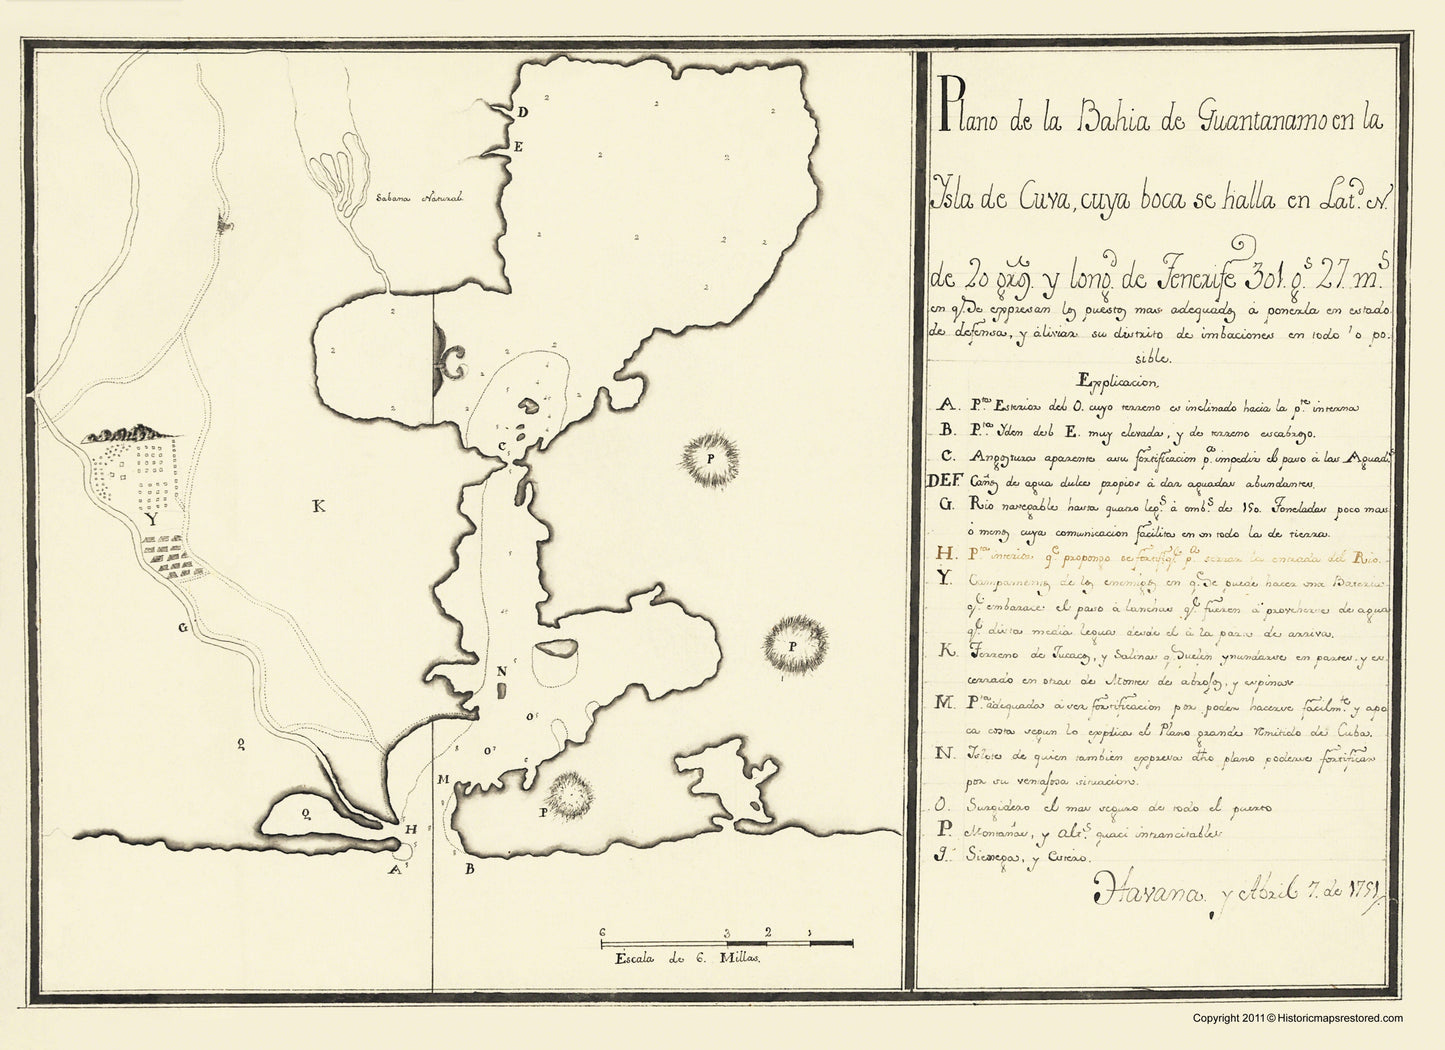 Plano de la Bahia de Guantanamo en la
Ysla de Cuva, cuya boca se halla en Lat.d N.
de 20 gr.s y long.d de Tenerife 301 g.s 27 m.s
en q.e se expresan los puestos mas adequados á ponerla en estado
de defensa, y áliviar su distrito de imbaciones en todo lo po-
sible.
Explicacion.
A. P.ta Exterior del O. cuyo terreno es inclinado hacia la p.te interna
B. P.ta Yden del E. muy elevada, y de terreno escabroso.
C. Angostura aparente a su fortificacion p.a impedir el paso á las Aguad.s
DEF Caños de agua dulce propios á dar aguadas abundantes.
G. Rio navegable hasta quatro leg.s á emb.s de 150. Toneladas poco mas
ó menos cuya comunicacion facilita en todo la de tierra.
H. P.ta interior q.e propongo se fortifiq.e p.a serrar la entrada del Rio.
Y. Campamentos de los enemigos en q.e se puede hacer una Bateria
q.e embarace el paso á lanchas q.e fueren á proveherse de agua
q.e dista media legua desde el á la para de arriva.
K. Terreno de Tucacos, y Salinas q.e suelen ynundarse en partes y es
cerrado en otras de Montes de abrojos, y espinas
M. P.ta adequada á ser fortificacion por poder hacerse facilm.te y apo
ca costa segun lo explica el Plano grande remitido de Cuba.
N. Islote de quien tambien expresa dho plano poderse fortificar
por su ventajosa situacion.
O. Surgidero el mas seguro de todo el puerto
P. Montañas, y alt.s quaci intrancitables
q. Sienega, y Estero.
Havana y Abril 7. de 1751.
D
E
Sabana Natural.
2
2
2
2
2
2
2
2
2
2
2
2
2
C
C
P
K
Y
P
G
N
O
Q
O
M
P
Q
H
A
B
6 3 2 1
Escala de 6. Millas.
Copyright 2011 © Historicmapsrestored.com